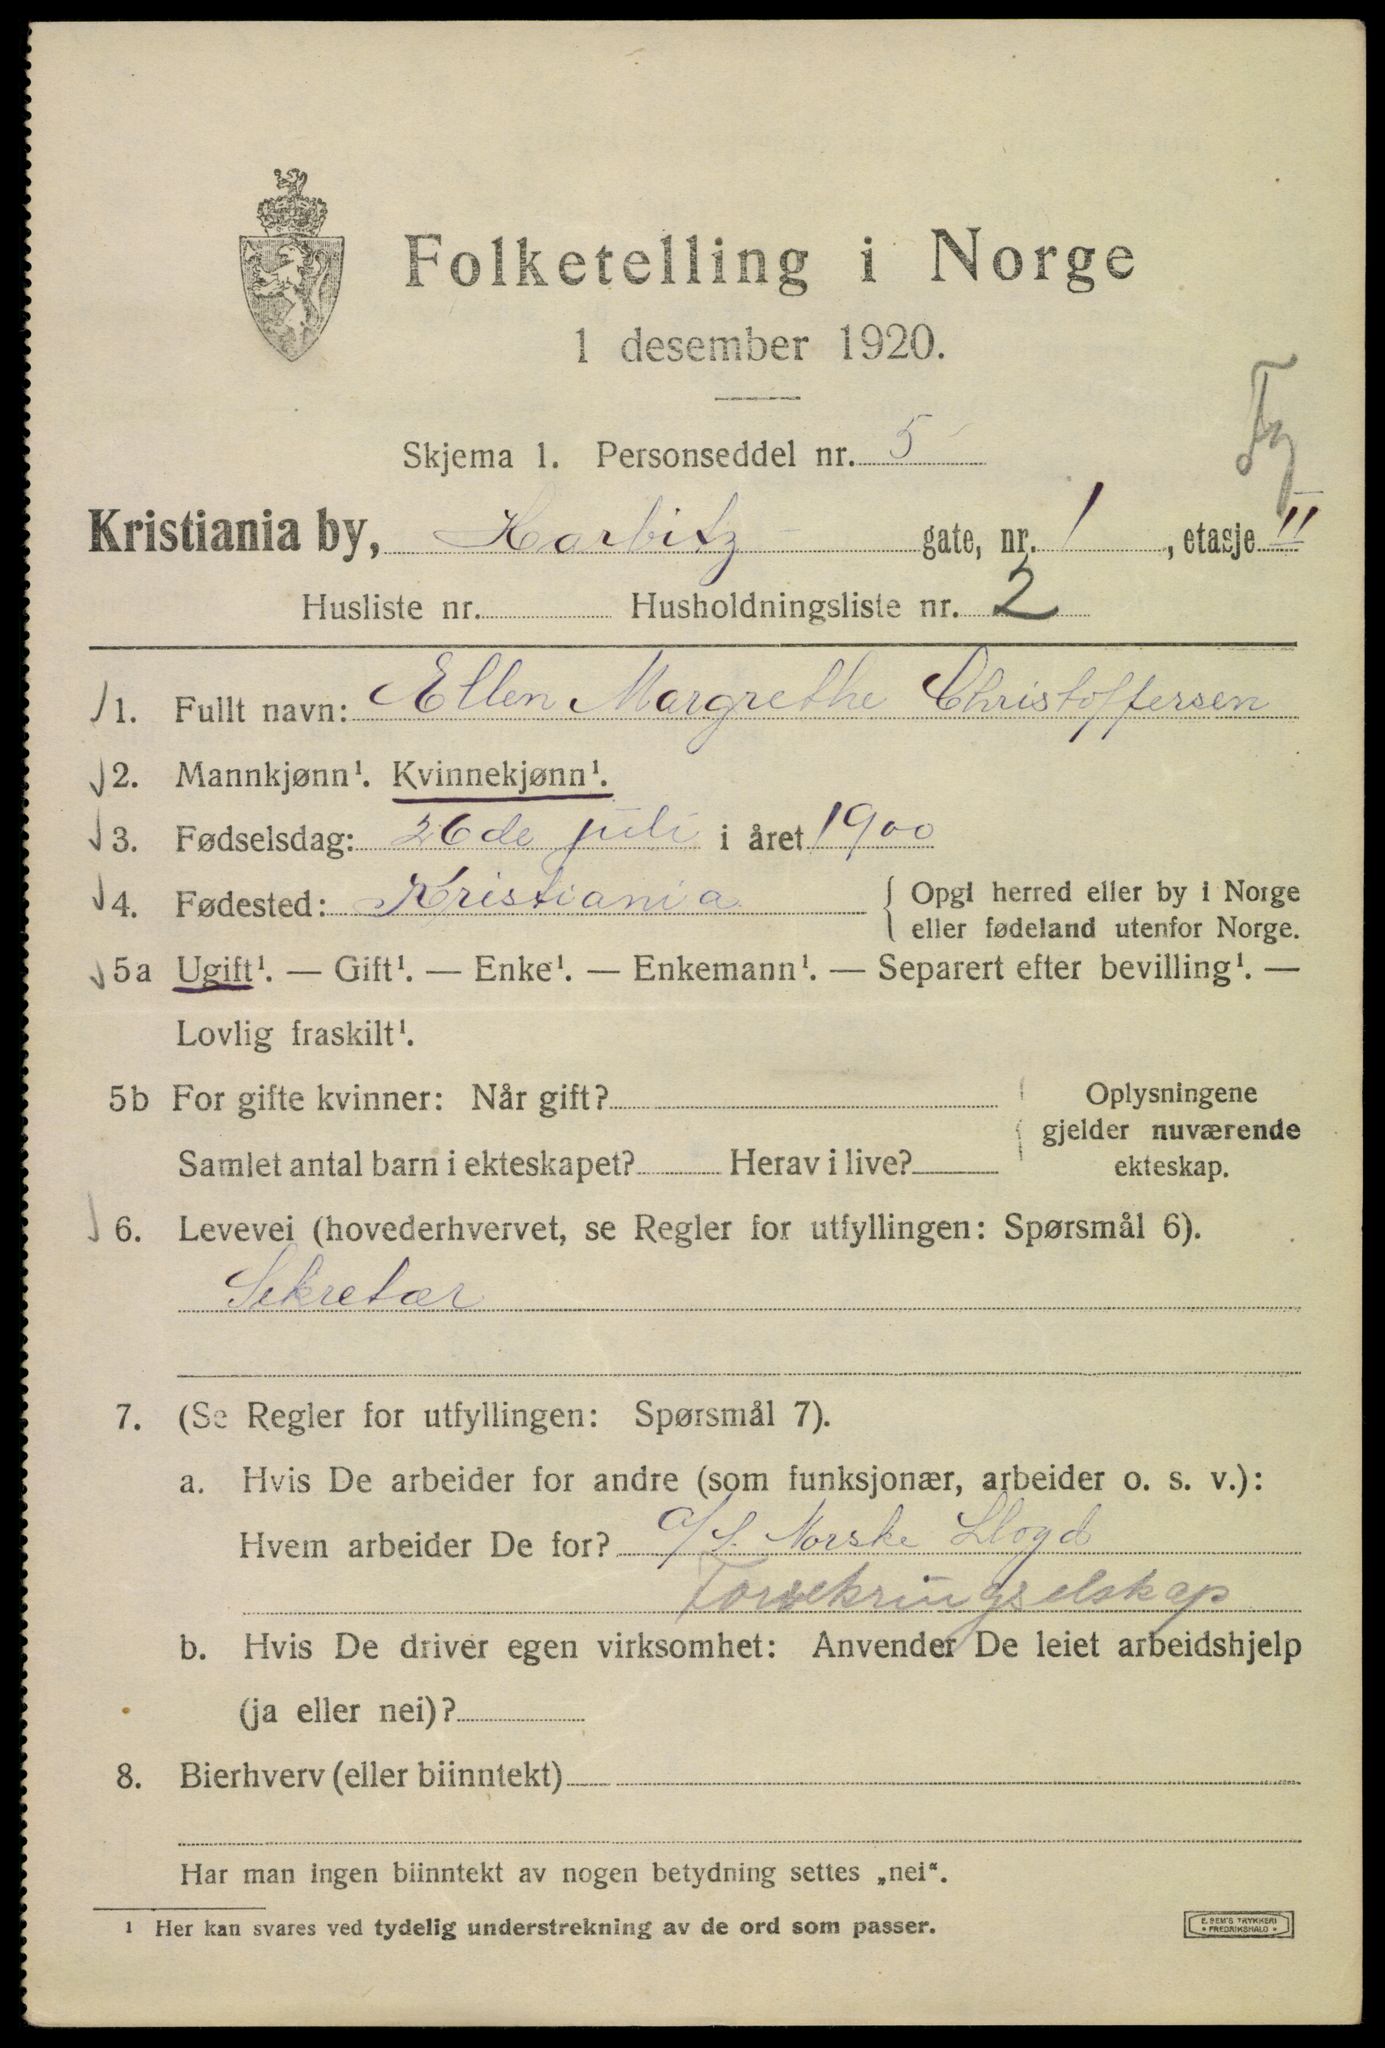 Folketelling i Norge
1 desember 1920.
Skjema 1. Personseddel nr. 5
Kristiania by, Harbitz gate, nr. 1, etasje II
Husliste nr. Husholdningsliste nr. 2
1. Fullt navn: Ellen Margrethe Christoffersen
2. Mannkjønn¹. Kvinnekjønn¹.
3. Fødselsdag: 26de juli i året 1900
4. Fødested: Kristiania { Opgi herred eller by i Norge
eller fødeland utenfor Norge.
5a Ugift¹. — Gift¹. — Enke¹. — Enkemann¹. — Separert efter bevilling¹. —
Lovlig fraskilt¹.
5b For gifte kvinner: Når gift? Oplysningene
gjelder nuværende
Samlet antal barn i ekteskapet? Herav i live? ekteskap.
6. Levevei (hovederhvervet, se Regler for utfyllingen: Spørsmål 6).
Sekretær
7. (Se Regler for utfyllingen: Spørsmål 7).
a. Hvis De arbeider for andre (som funksjonær, arbeider o. s. v.):
Hvem arbeider De for? A/S. Norske Lloyd
Forsekringselskap
b. Hvis De driver egen virksomhet: Anvender De leiet arbeidshjelp
(ja eller nei)?
8. Bierhverv (eller biinntekt)
Har man ingen biinntekt av nogen betydning settes „nei“.
¹ Her kan svares ved tydelig understrekning av de ord som passer.
E. SEM'S TRYKKERI
• FREDRIKSHALD •